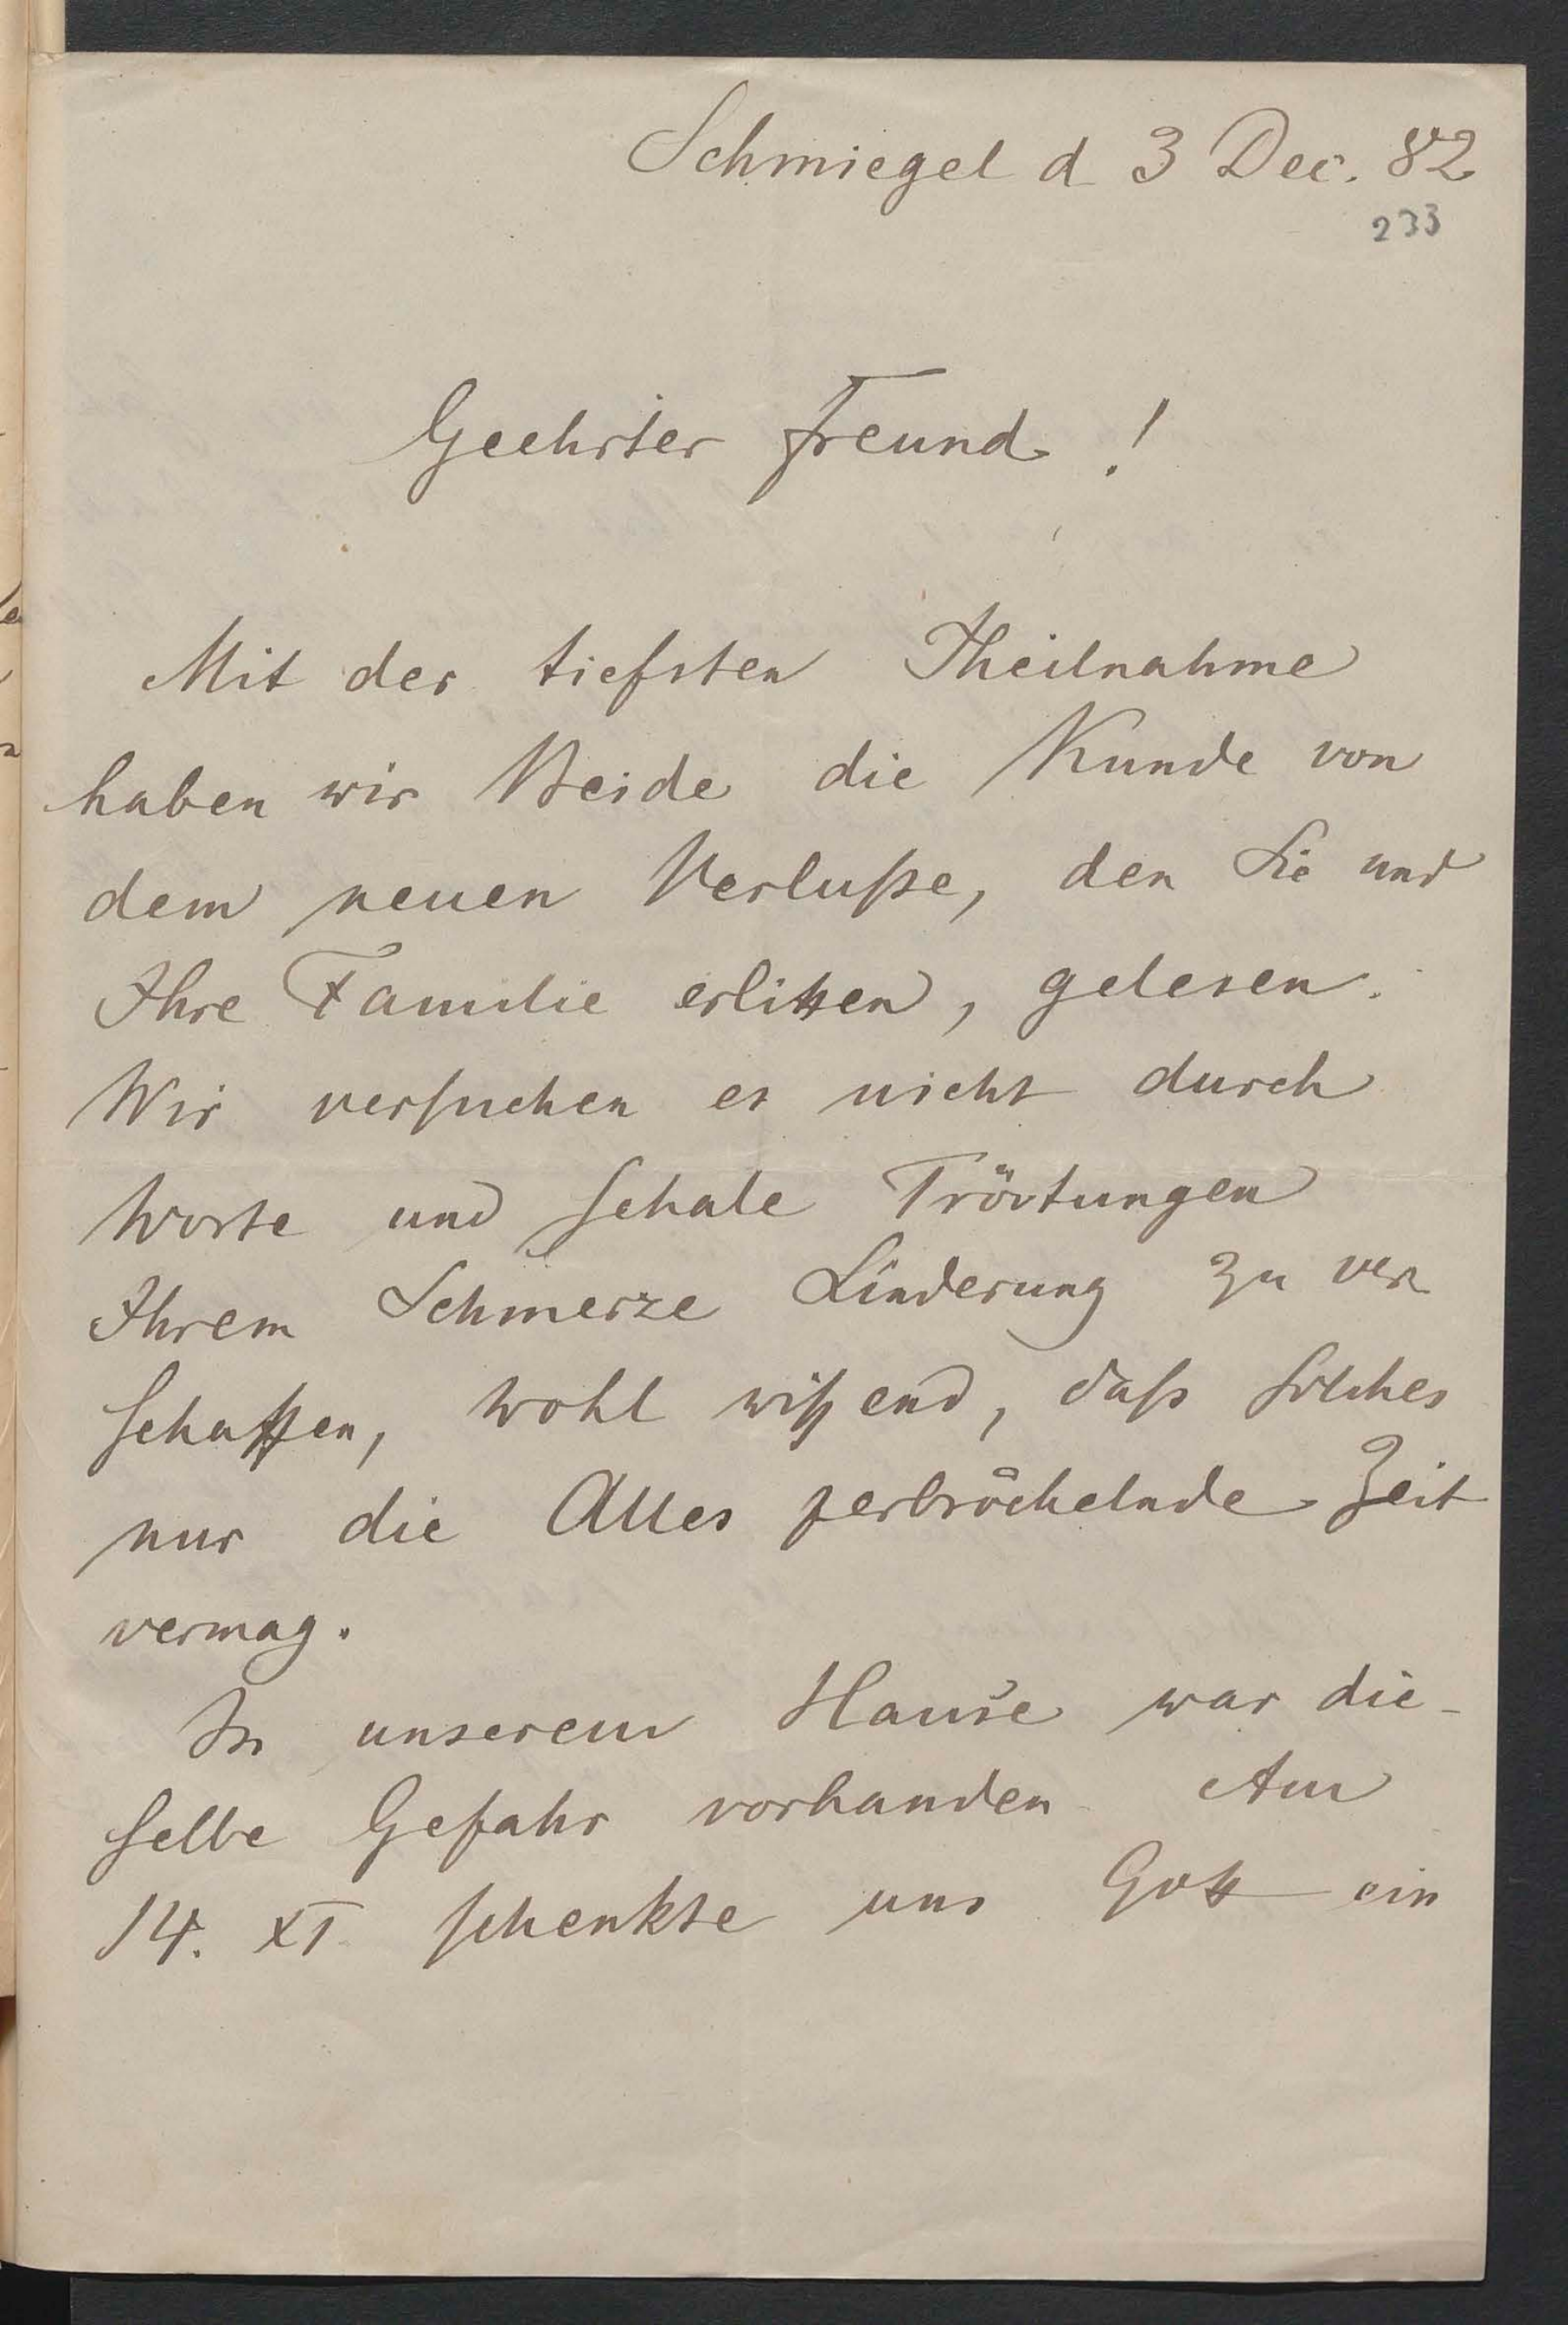 Schmiegel d 3 Dec. 82
233
Geehrter Freund!
Mit der tiefsten Theilnahme
haben wir Beide die Kunde von
dem neuen Verluße, den Sie und
Ihre Familie erlitten, gelesen.
Wir versuchen es nicht durch
Worte und schale Tröstungen
Ihrem Schmerze Linderung zu ver
schaffen, wohl wißend, daß solches
nur die Alles zerbröckelnde Zeit
vermag.
In unserem Hause war die-
selbe Gefahr vorhanden Am
14. XI schenkte uns Gott ein